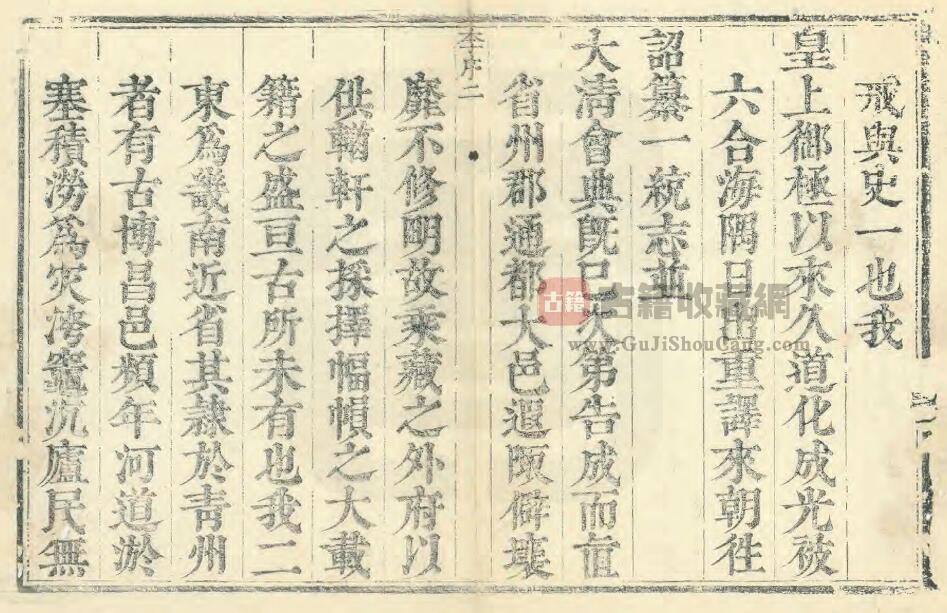 戒與史一也我
皇上御極以來久道化成光被
六合海隅日出重譯來朝徃
詔纂一統志並
大清會典旣已次第告成而直
省州郡通都大邑遐陬僻壤
李序二
靡不修明故乘藏之外府以
供輶軒之採擇幅幀之大載
籍之盛亘古所未有也我二
東爲畿南近省其隷於靑州
者有古博昌邑頻年河道淤
塞積澇爲灾洿竈沉廬民無
古籍
古籍收藏網
www.GuJiShouCang.com